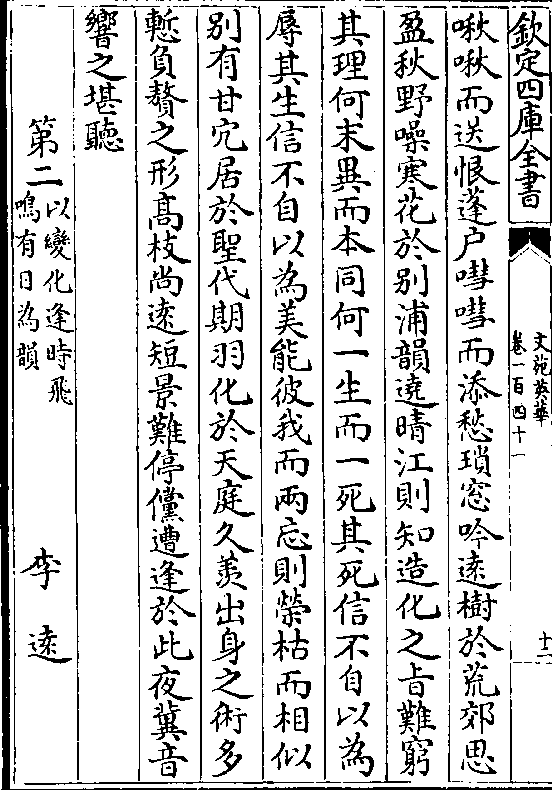 欽定四庫全書
文苑英華
卷一百四十一
十二
啾啾而送恨蓬户嘒嘒而添愁瑣窓吟遠樹於荒郊思
盈秋野噪寒花於别浦韻遶晴江則知造化之㫖難窮
其理何末異而本同何一生而一死其死信不自以為
辱其生信不自以為美能彼我而兩忘則榮枯而相似
别有甘穴居於聖代期羽化於天庭久羨出身之術多
慙負贅之形髙枝尚逺短景難停儻遭逢於此夜冀音
響之堪聽
第二
以變化逢時飛
鳴有日為韻
李逺